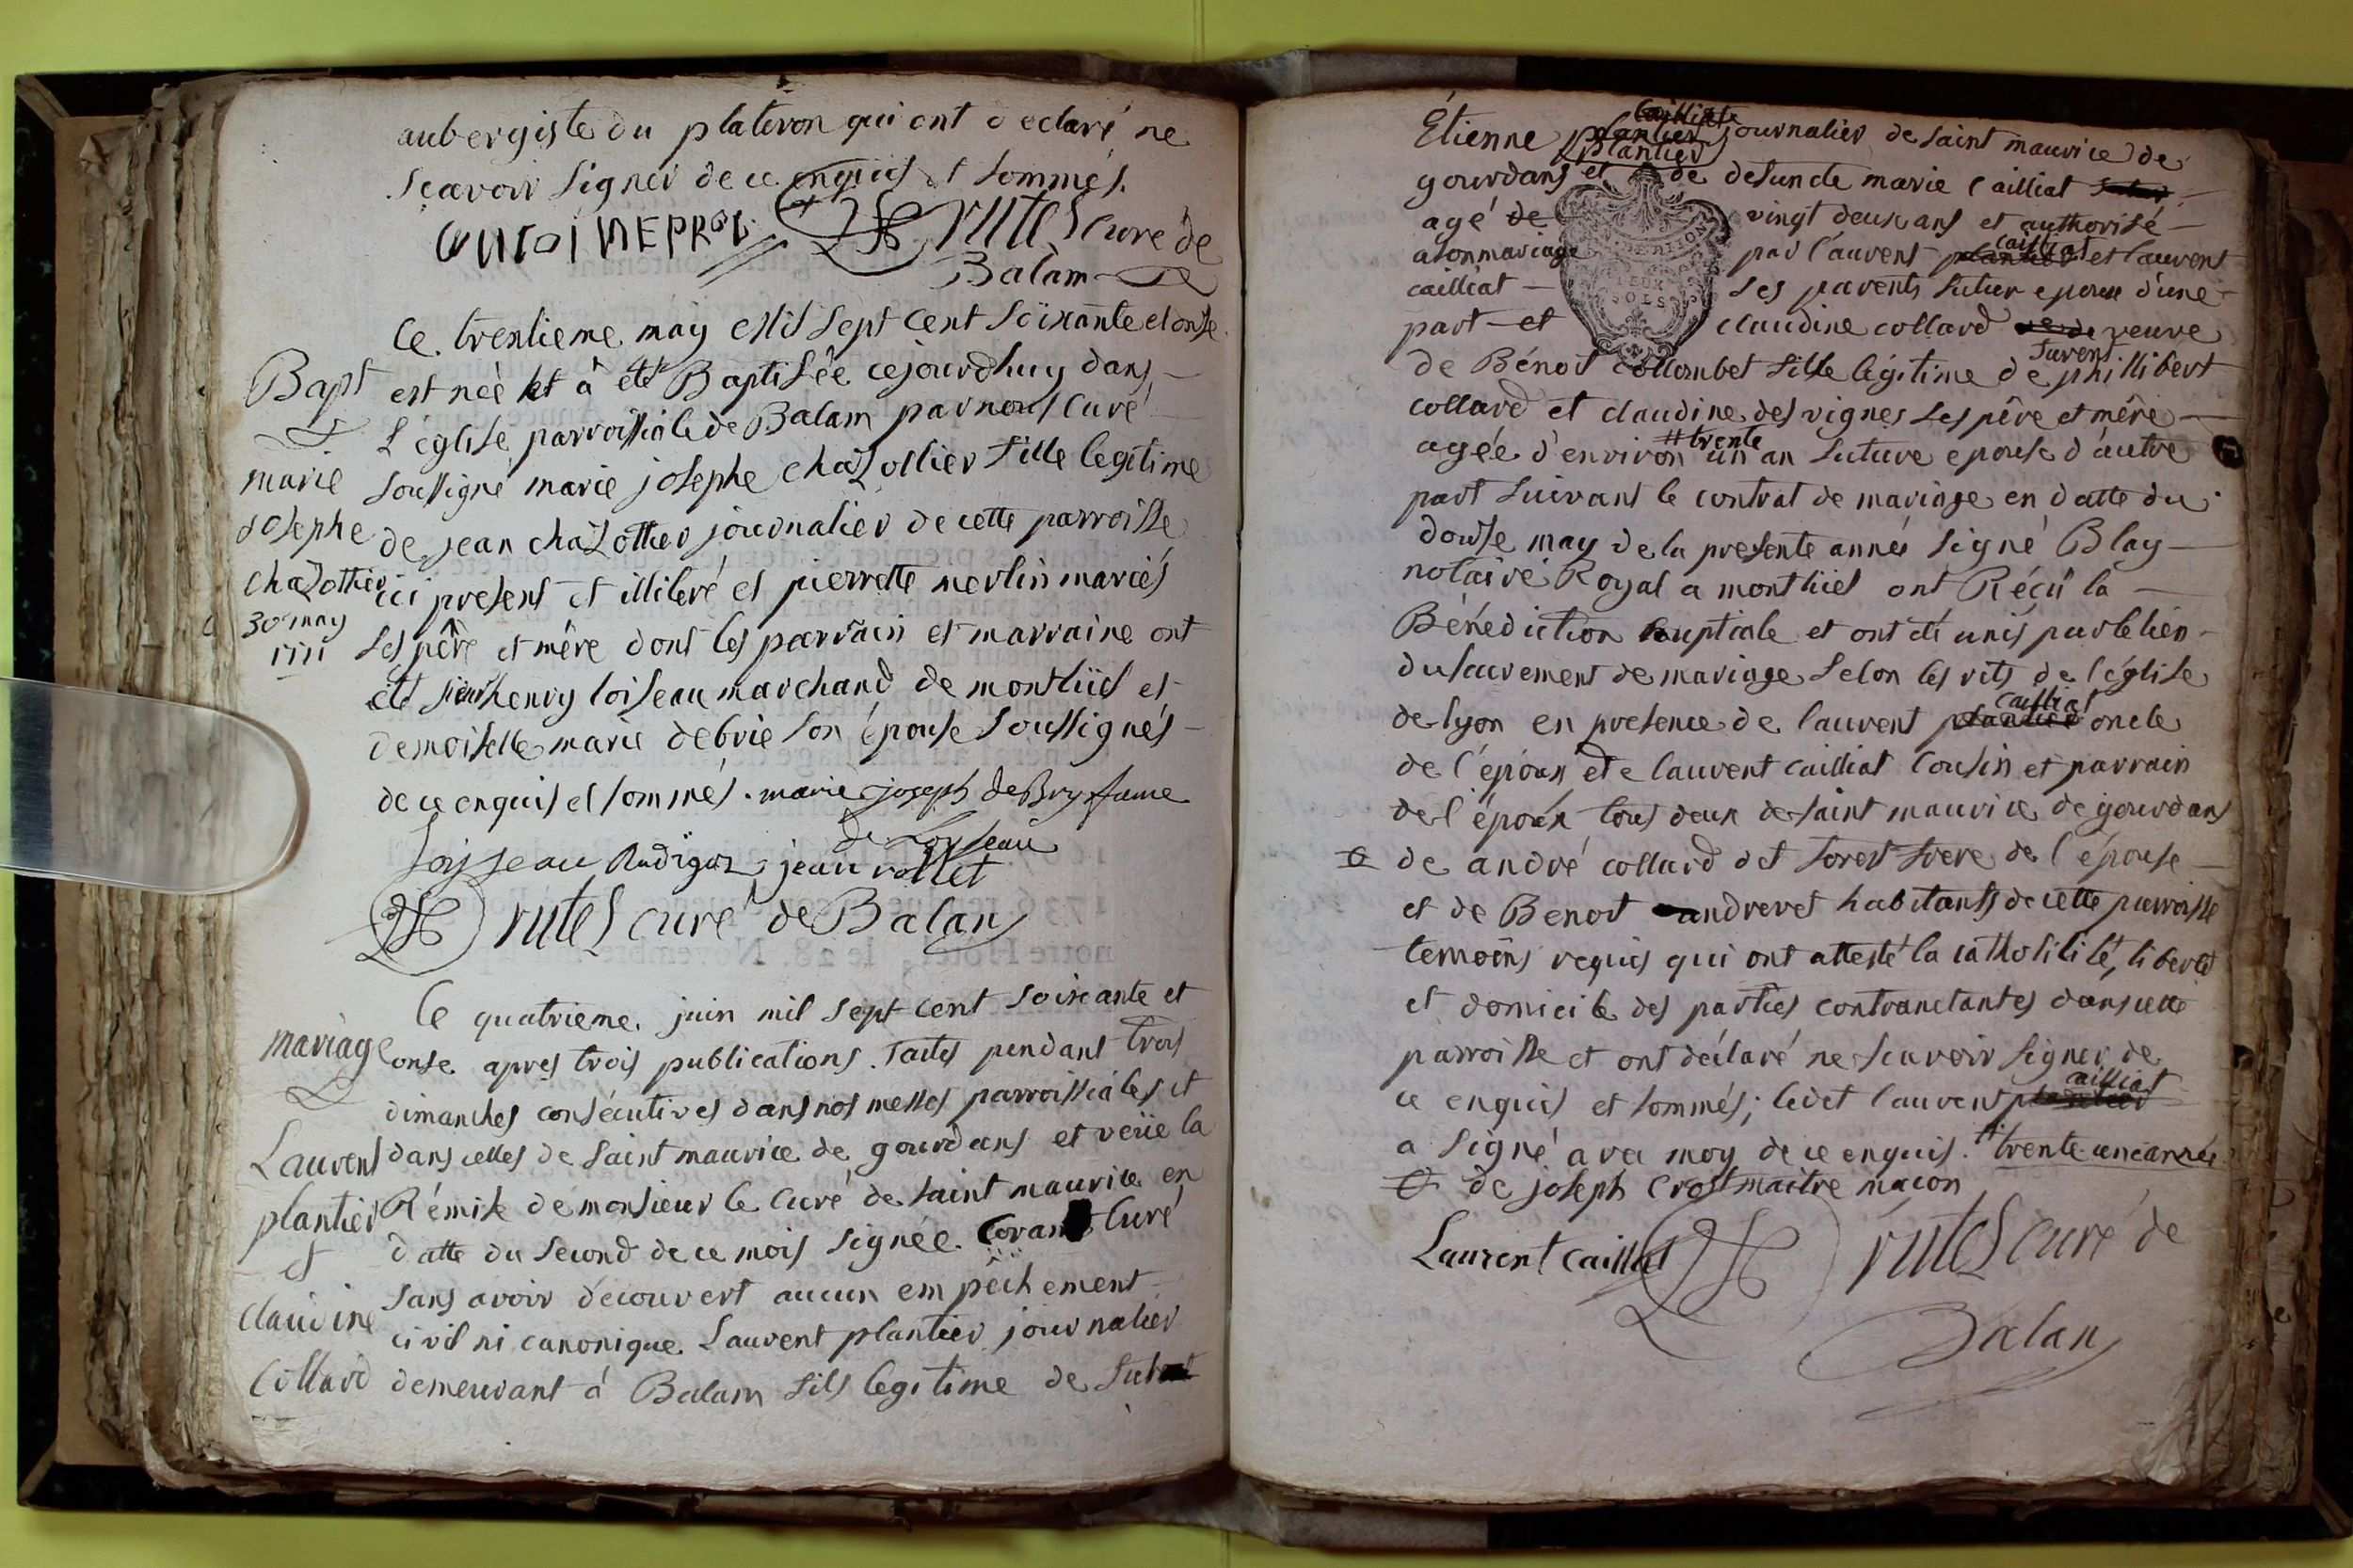 aubergiste du plateron qui ont declaré ne
sçavoir signer de ce enquis et sommés.
antoine prol rutes curé de
Balam
Le trentieme may mil sept cent soixante et onse
Bapt
est née et à été Baptisée cejourdhuy dans
L'église parroissiale de Balam par nous curé
marie
soussigné marie josephe chazottier fille legitime
josephe
de jean chazottier journalier de cette parroisse
chazottier
ici present et illiteré et pierrette merlin mariés
30 may
1771
ses pêre et mêre dont les parrain et marraine ont
été sieur henry loiseau marchand de montluel et
demoiselle marie debrie son épouse soussignés
de ce enquis et sommés. marie joseph de Bry fame
de Loyseau
Loisseau Rudigoz jean rollet
rutes curé de Balan
Le quatrieme juin mil sept cent soixante et
mariage
onse apres trois publications faites pendant trois
dimanches consécutives dans nos messes parroissiales et
Laurent
dans celles de saint maurice de gourdans et veüe la
plantier
Rémise de monsieur le curé de saint maurice en
datte du second de ce mois signée curé
et
sans avoir découvert aucun empêchement
claudine
civil ni canonique Laurent plantier journalier
Collard
demeurant à Balam fils legitime de
cailliat
Étienne plantier journalier de saint maurice de
plantier
gourdans et de defuncte marie Cailliat
agé de vingt deux ans et authorisé
cailliat
a son mariage par laurent plantier et laurent
cailliat ses parents futur epoux d'une
part et claudine collard veuve
de Bénoit Collombet fille légitime de phillibert
collard et claudine des vignes ses pêre et mêre
# trente
agée d'environ un an future epouse d'autre
part suivant le contrat de mariage en datte du
douse may de la presente année signé Blay
notaire Royal a montluel ont Réçû la
Bénédiction nuptiale et ont été unis par le lien
du sacrement de mariage selon les rits de l'église
cailliat
de lyon en presence de laurent plantier oncle
de l'époux et de laurent cailliat cousin et parrain
de l'époux tous deux de saint maurice de gourdans
de andré collard dit forest frere de l'épouse
et de Benoit andrevet habitants de cette parroisse
temoins requis qui ont attesté la catholicité, liberté
et domicile des parties contranctantes dans cette
parroisse et ont déclaré ne scavoir signer de
cailliat
ce enquis et sommés; ledit laurent plantier
a signé avec moy de ce enquis. # trente un année
de joseph Crost maitre maçon
Laurent Cailliat rutes curé de
Balan